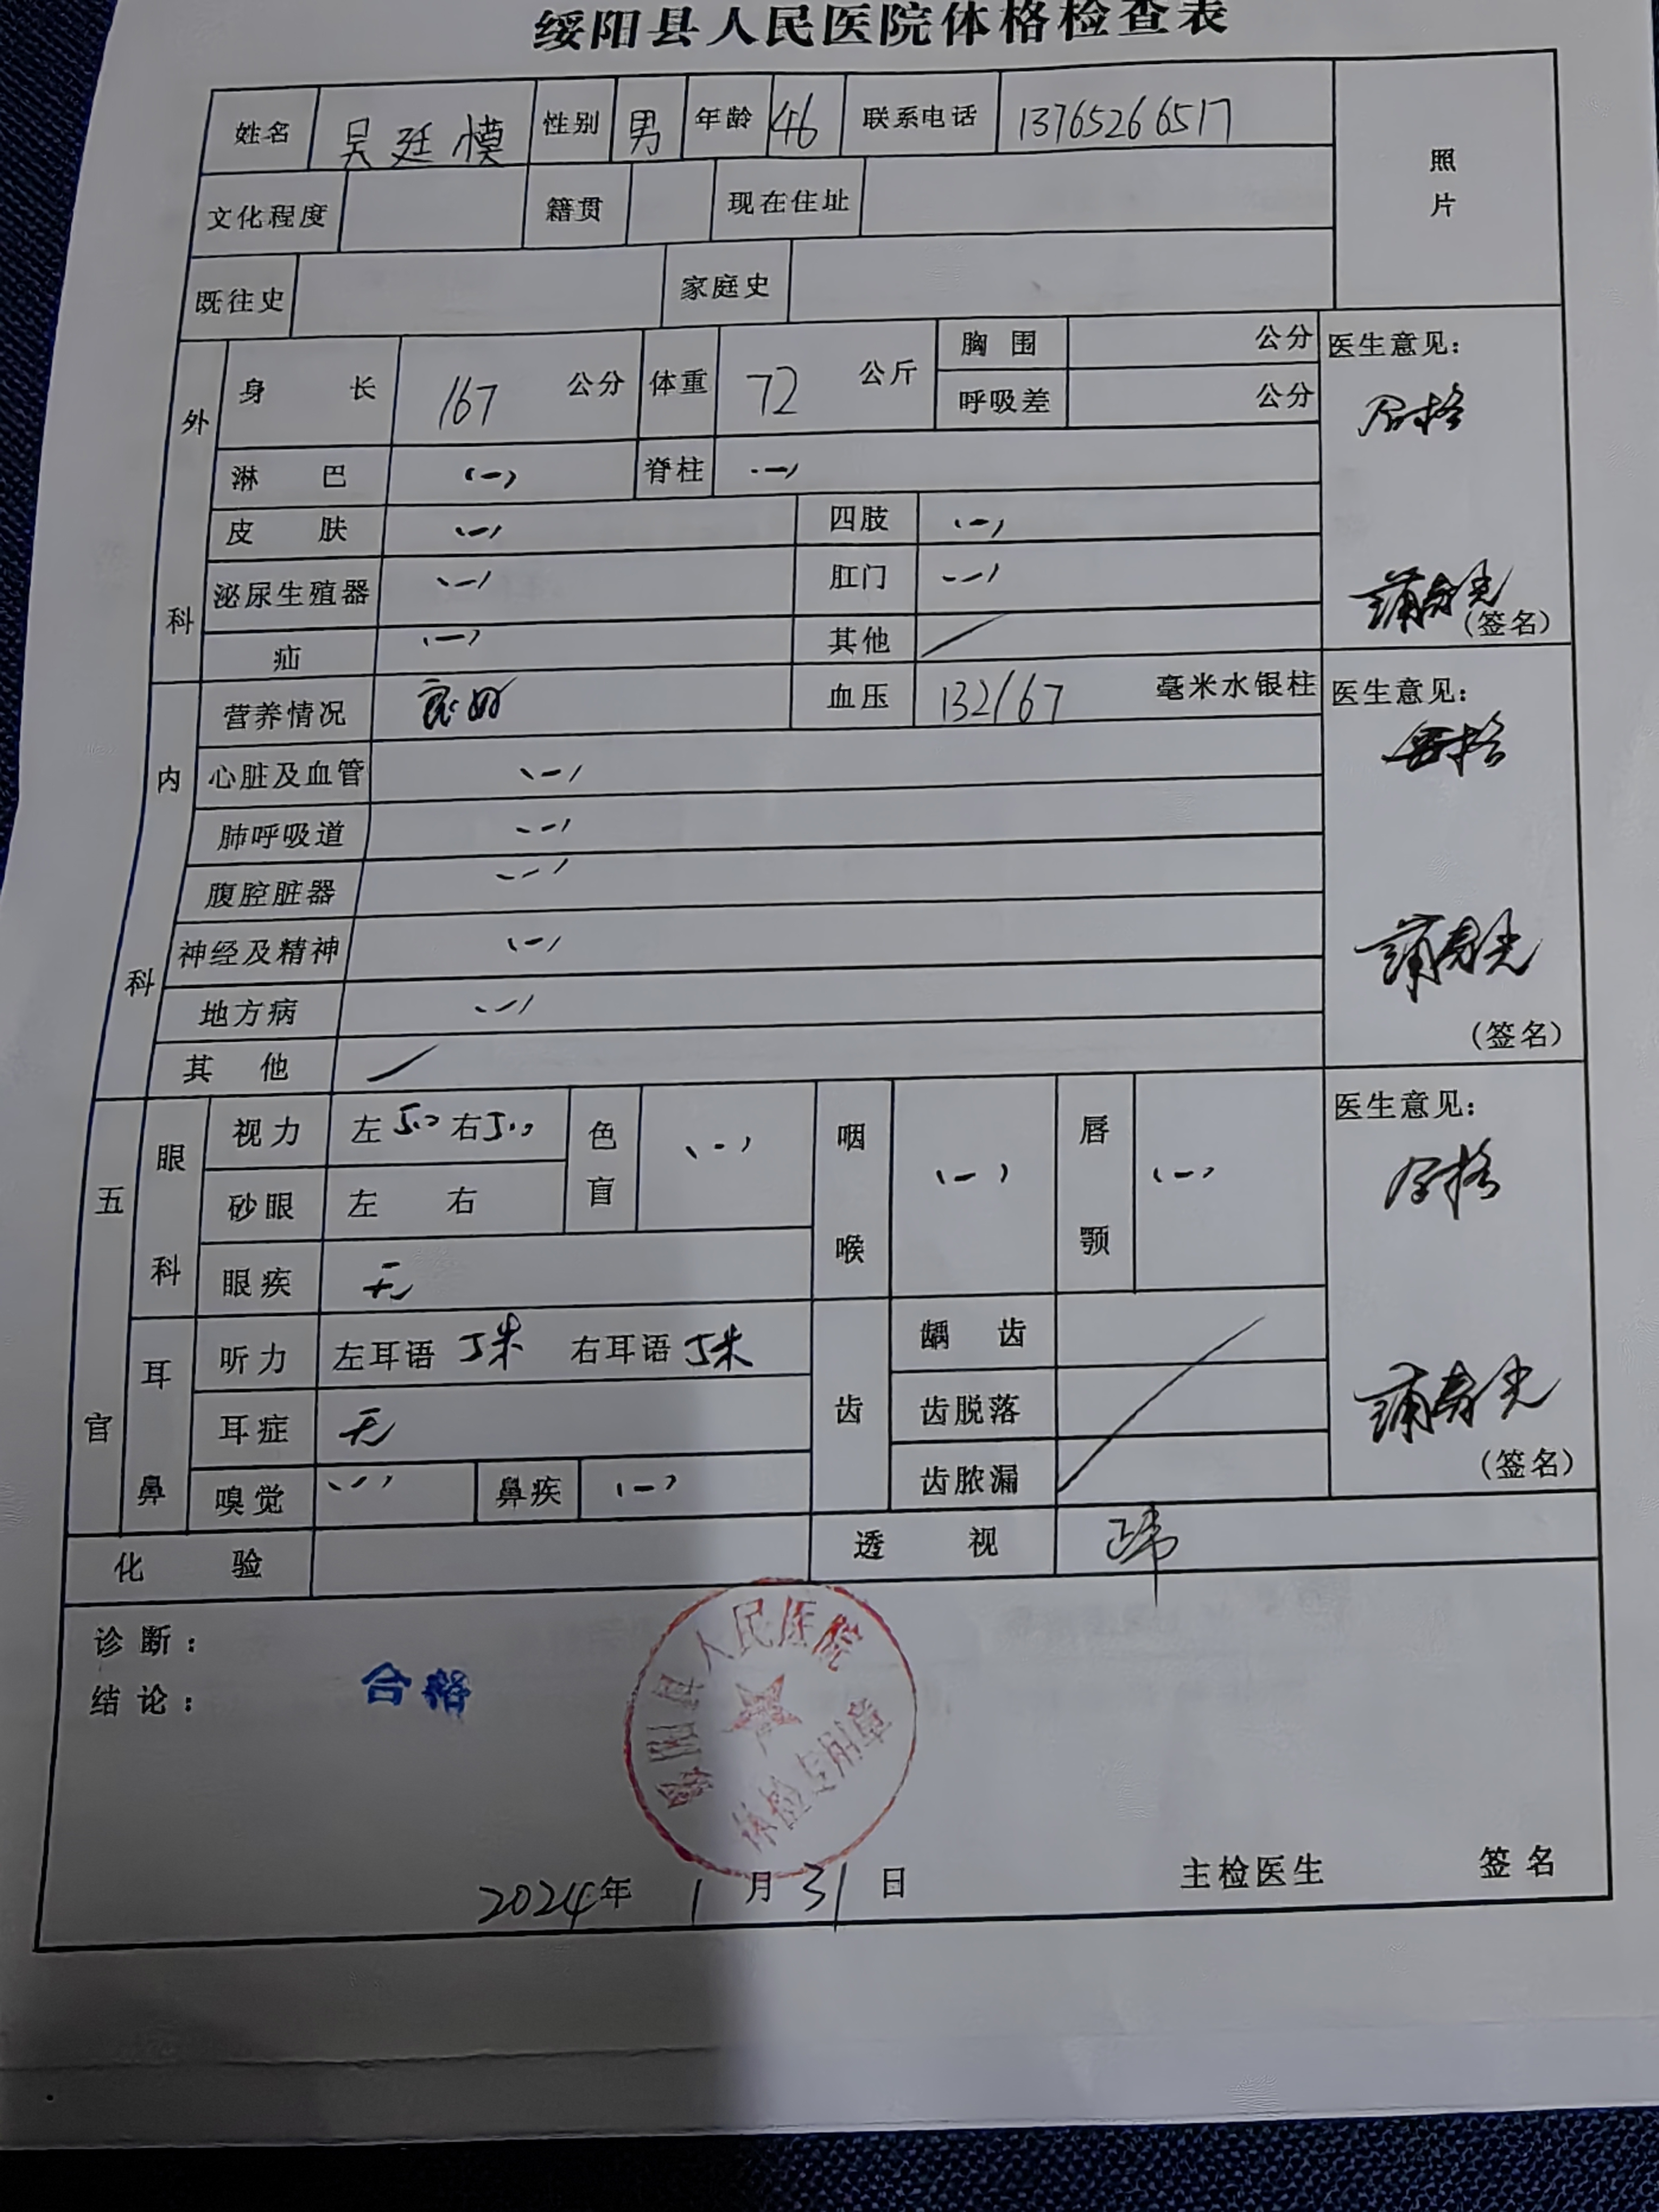 绥阳县人民医院体格检查表
姓名 吴廷模 性别 男 年龄 46 联系电话 13765266517
照片
文化程度 籍贯 现在住址
既往史 家庭史
外科
身长 167 公分 体重 72 公斤 胸围 公分
呼吸差 公分
淋巴 (一) 脊柱 (一)
皮肤 (一) 四肢 (一)
泌尿生殖器 (一) 肛门 (一)
疝 (一) 其他 /
医生意见:
合格
(签名)
内科
营养情况 良好 血压 132/67 毫米水银柱
心脏及血管 (一)
肺呼吸道 (一)
腹腔脏器 (一)
神经及精神 (一)
地方病 (一)
其他 /
医生意见:
合格
(签名)
五官
眼科
视力 左 5.0 右 5.0 色盲 (一)
砂眼 左 右
眼疾 无
咽喉 (一) 唇颚 (一)
耳鼻
听力 左耳语 5米 右耳语 5米
耳症 无
嗅觉 (一) 鼻疾 (一)
齿
龋齿
齿脱落
齿脓漏
医生意见:
合格
(签名)
化验 透视
诊断:
结论: 合格
绥阳县人民医院
体检专用章
2024年 1月31日 主检医生 签名